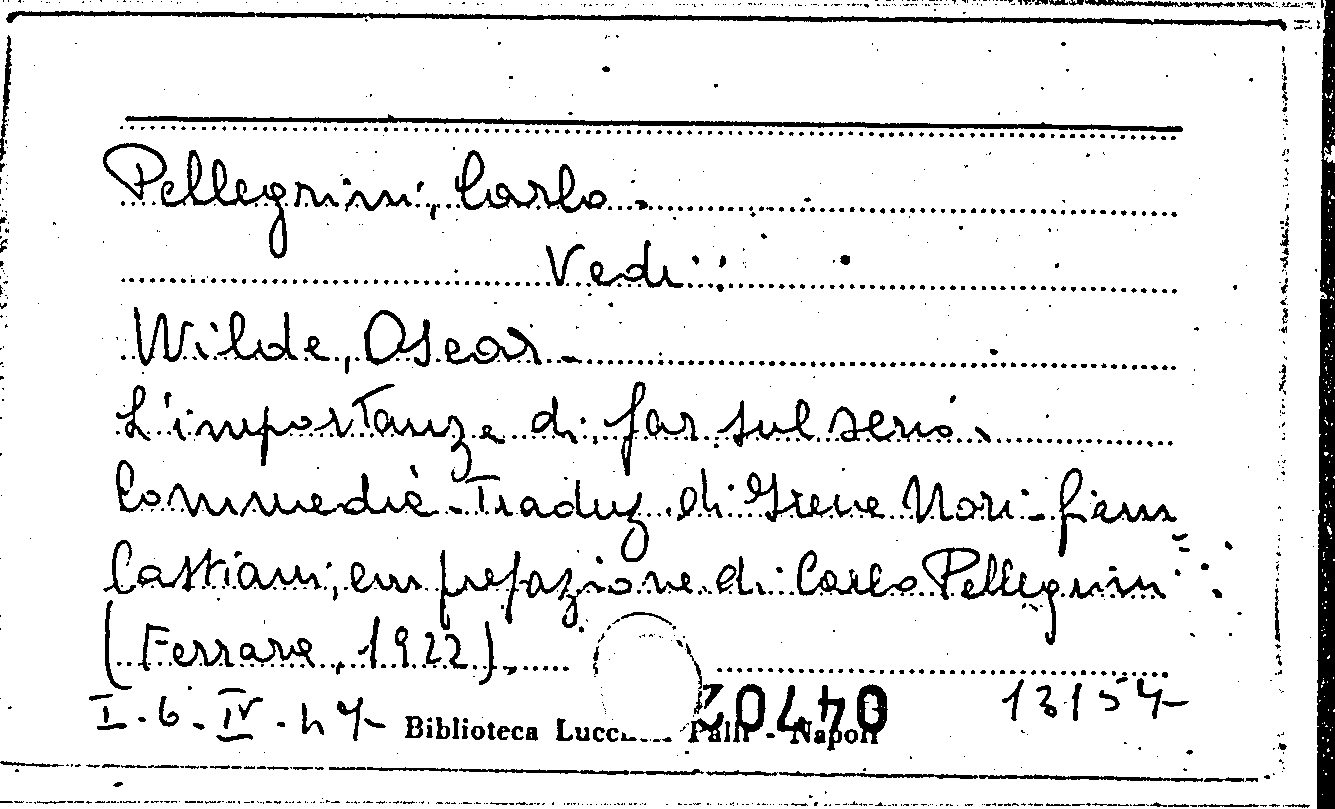 Pellegrini, Carlo.
Vedi:
Wilde, Oscar.
L'importanza di far sul serio.
Commedia. Traduz. di Irene Nori-Giam
Castiani; con prefazione di Carlo Pellegrini
(Ferrara, 1922).
I-6-IV-h 4 13154
Biblioteca Lucc Palli - Napoli